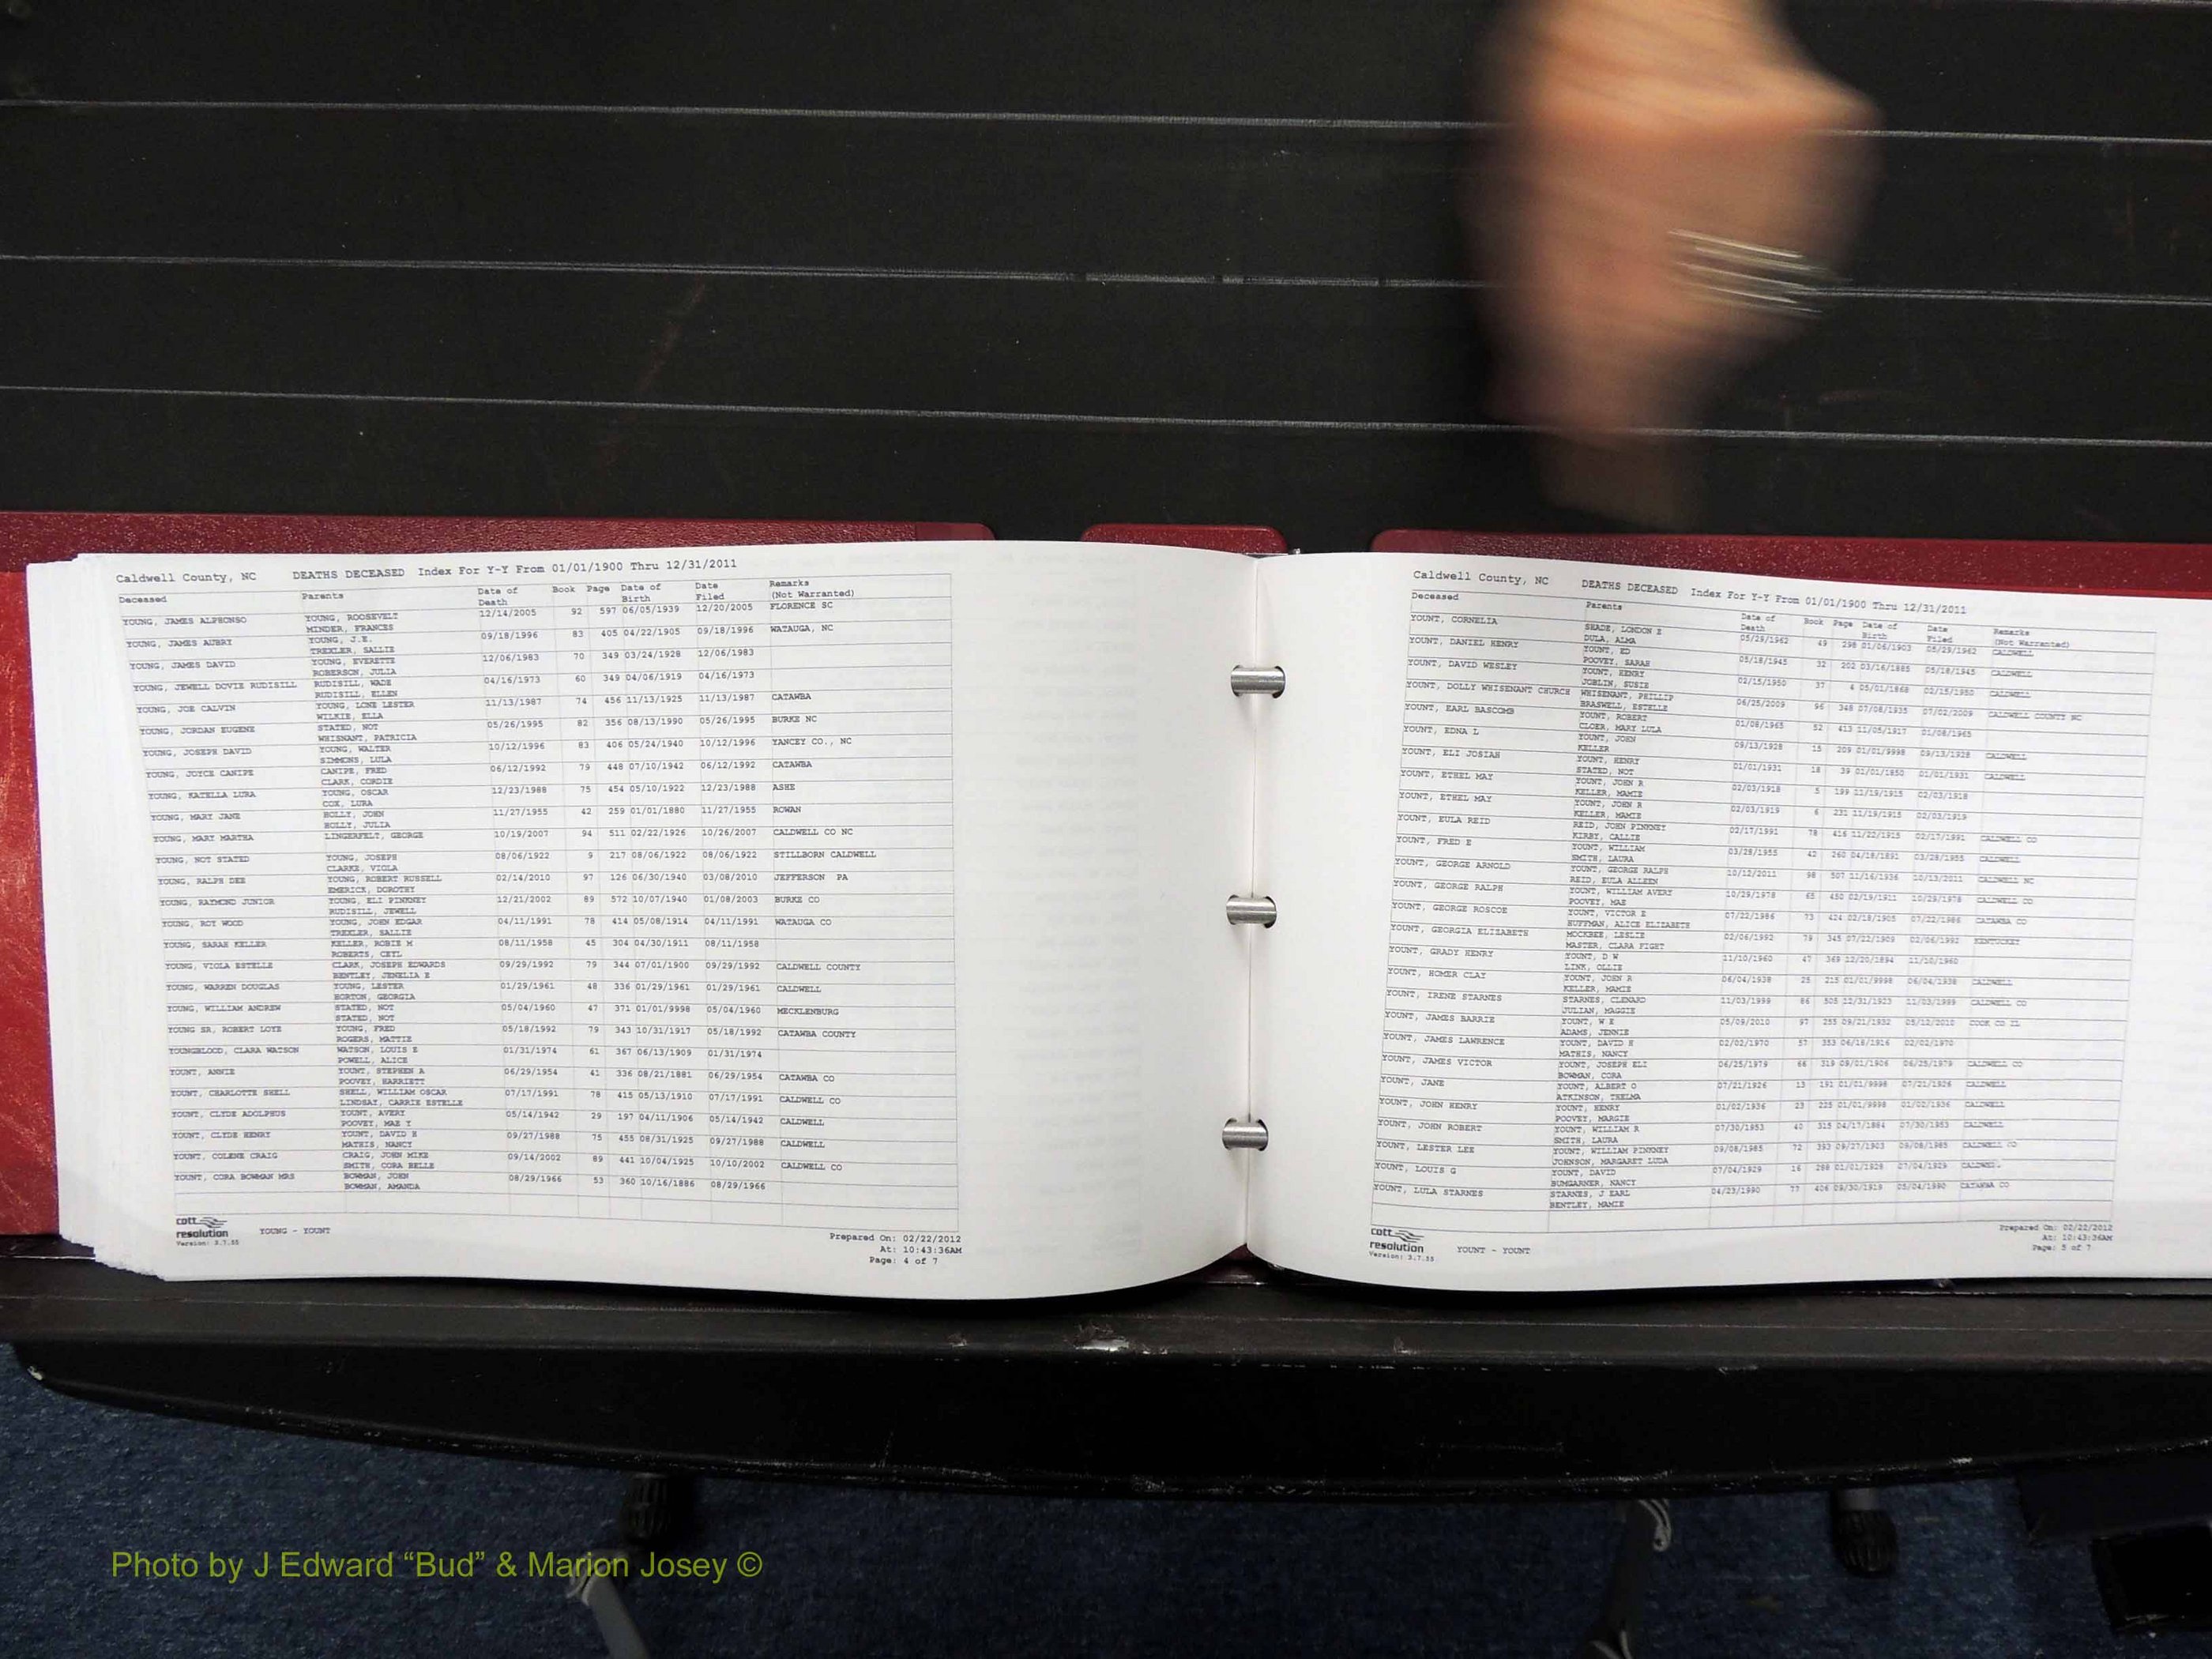 Caldwell County, NC DEATHS DECEASED Index For Y-Y From 01/01/1900 Thru 12/31/2011
Deceased Parents Date of Death Book Page Date of Birth Date Filed Remarks (Not Warranted)
YOUNG, JAMES ALPHONSO YOUNG, ROOSEVELT 12/14/2005 92 597 06/05/1939 12/20/2005 FLORENCE SC
MINDER, FRANCES
YOUNG, JAMES AUBRY YOUNG, J.E. 09/18/1996 83 405 04/22/1905 09/18/1996 WATAUGA, NC
TREXLER, SALLIE
YOUNG, JAMES DAVID YOUNG, EVERETTE 12/06/1983 70 349 03/24/1928 12/06/1983
ROBERSON, JULIA
YOUNG, JEWELL DOVIE RUDISILL RUDISILL, WADE 04/16/1973 60 349 04/06/1919 04/16/1973
RUDISILL, ELLEN
YOUNG, JOE CALVIN YOUNG, LONE LESTER 11/13/1987 74 456 11/13/1925 11/13/1987 CATAWBA
WILKIE, ELLA
YOUNG, JORDAN EUGENE STATED, NOT 05/26/1995 82 356 08/13/1990 05/26/1995 BURKE NC
WHISNANT, PATRICIA
YOUNG, JOSEPH DAVID YOUNG, WALTER 10/12/1996 83 406 05/24/1940 10/12/1996 YANCEY CO., NC
SIMMONS, LULA
YOUNG, JOYCE CANIPE CANIPE, FRED 06/12/1992 79 448 07/10/1942 06/12/1992 CATAWBA
CLARK, CORDIE
YOUNG, KATELLA LURA YOUNG, OSCAR 12/23/1988 75 454 05/10/1922 12/23/1988 ASHE
COX, LURA
YOUNG, MARY JANE HOLLY, JOHN 11/27/1955 42 259 01/01/1880 11/27/1955 ROWAN
HOLLY, JULIA
YOUNG, MARY MARTHA LINGERFELT, GEORGE 10/19/2007 94 511 02/22/1926 10/26/2007 CALDWELL CO NC
YOUNG, NOT STATED YOUNG, JOSEPH 08/06/1922 9 217 08/06/1922 08/06/1922 STILLBORN CALDWELL
CLARKE, VIOLA
YOUNG, RALPH DEE YOUNG, ROBERT RUSSELL 02/14/2010 97 126 06/30/1940 03/08/2010 JEFFERSON PA
EMERICK, DOROTHY
YOUNG, RAYMOND JUNIOR YOUNG, ELI PINKNEY 12/21/2002 89 572 10/07/1940 01/08/2003 BURKE CO
RUDISILL, JEWELL
YOUNG, ROY WOOD YOUNG, JOHN EDGAR 04/11/1991 78 414 05/08/1914 04/11/1991 WATAUGA CO
TREXLER, SALLIE
YOUNG, SARAH KELLER KELLER, ROBIE M 08/11/1958 45 304 04/30/1911 08/11/1958
ROBERTS, CETL
YOUNG, VIOLA ESTELLE CLARK, JOSEPH EDWARDS 09/29/1992 79 344 07/01/1900 09/29/1992 CALDWELL COUNTY
BENTLEY, JENELIA E
YOUNG, WARREN DOUGLAS YOUNG, LESTER 01/29/1961 48 336 01/29/1961 01/29/1961 CALDWELL
HORTON, GEORGIA
YOUNG, WILLIAM ANDREW STATED, NOT 05/04/1960 47 371 01/01/9998 05/04/1960 MECKLENBURG
STATED, NOT
YOUNG SR, ROBERT LOYE YOUNG, FRED 05/18/1992 79 343 10/31/1917 05/18/1992 CATAWBA COUNTY
ROGERS, MATTIE
YOUNGBLOOD, CLARA WATSON WATSON, LOUIS E 01/31/1974 61 367 06/13/1909 01/31/1974
POWELL, ALICE
YOUNT, ANNIE YOUNT, STEPHEN A 06/29/1954 41 336 08/21/1881 06/29/1954 CATAWBA CO
POOVEY, HARRIETT
YOUNT, CHARLOTTE SHELL SHELL, WILLIAM OSCAR 07/17/1991 78 415 05/13/1910 07/17/1991 CALDWELL CO
LINDSAY, CARRIE ESTELLE
YOUNT, CLYDE ADOLPHUS YOUNT, AVERY 05/14/1942 29 197 04/11/1906 05/14/1942 CALDWELL
POOVEY, MAE Y
YOUNT, CLYDE HENRY YOUNT, DAVID H 09/27/1988 75 455 08/31/1925 09/27/1988 CALDWELL
MATHIS, NANCY
YOUNT, COLENE CRAIG CRAIG, JOHN MIKE 09/14/2002 89 441 10/04/1925 10/10/2002 CALDWELL CO
SMITH, CORA BELLE
YOUNT, CORA BOWMAN MRS BOWMAN, JOHN 08/29/1966 53 360 10/16/1886 08/29/1966
BOWMAN, AMANDA
cott
resolution YOUNG - YOUNT
Version: 3.7.55
Prepared On: 02/22/2012
At: 10:43:36AM
Page: 4 of 7
Caldwell County, NC DEATHS DECEASED Index For Y-Y From 01/01/1900 Thru 12/31/2011
Deceased Parents Date of Death Book Page Date of Birth Date Filed Remarks (Not Warranted)
YOUNT, CORNELIA SHADE, LONDON E 05/29/1962 49 298 01/06/1903 05/29/1962 CALDWELL
DULA, ALMA
YOUNT, DANIEL HENRY YOUNT, ED 05/18/1945 32 202 03/16/1885 05/18/1945 CALDWELL
POOVEY, SARAH
YOUNT, DAVID WESLEY YOUNT, HENRY 02/15/1950 37 4 05/01/1868 02/15/1950 CALDWELL
JOBLIN, SUSIE
YOUNT, DOLLY WHISENANT CHURCH WHISENANT, PHILLIP 06/25/2009 96 348 07/08/1935 07/02/2009 CALDWELL COUNTY NC
BRASWELL, ESTELLE
YOUNT, EARL BASCOMB YOUNT, ROBERT 01/08/1965 52 413 11/05/1917 01/08/1965
CLOER, MARY LULA
YOUNT, EDNA L YOUNT, JOHN 09/13/1928 15 209 01/01/9998 09/13/1928 CALDWELL
KELLER
YOUNT, ELI JOSIAH YOUNT, HENRY 01/01/1931 18 39 01/01/1850 01/01/1931 CALDWELL
STATED, NOT
YOUNT, ETHEL MAY YOUNT, JOHN R 02/03/1918 5 199 11/19/1915 02/03/1918
KELLER, MAMIE
YOUNT, ETHEL MAY YOUNT, JOHN R 02/03/1919 6 231 11/19/1915 02/03/1919
KELLER, MAMIE
YOUNT, EULA REID REID, JOHN PINKNEY 02/17/1991 78 416 12/22/1915 02/17/1991 CALDWELL CO
KIRBY, CALLIE
YOUNT, FRED E YOUNT, WILLIAM 03/28/1955 42 260 04/18/1891 03/28/1955 CALDWELL
SMITH, LAURA
YOUNT, GEORGE ARNOLD YOUNT, GEORGE RALPH 10/12/2011 98 507 11/16/1936 10/13/2011 CALDWELL NC
REID, EULA ALLEEN
YOUNT, GEORGE RALPH YOUNT, WILLIAM AVERY 10/29/1978 65 450 02/19/1911 10/29/1978 CALDWELL CO
POOVEY, MAE
YOUNT, GEORGE ROSCOE YOUNT, VICTOR E 07/22/1986 73 424 02/18/1905 07/22/1986 CATAWBA CO
HUFFMAN, ALICE ELIZABETH
YOUNT, GEORGIA ELIZABETH MOCKBEE, LESLIE 02/06/1992 79 345 07/22/1909 02/06/1992 KENTUCKEY
MASTER, CLARA FIGHT
YOUNT, GRADY HENRY YOUNT, D W 11/10/1960 47 369 12/20/1894 11/10/1960
LINK, OLLIE
YOUNT, HOMER CLAY YOUNT, JOHN R 06/04/1938 25 215 01/01/9998 06/04/1938 CALDWELL
KELLER, MAMIE
YOUNT, IRENE STARNES STARNES, CLENARD 11/03/1999 86 505 12/31/1923 11/03/1999 CALDWELL CO
JULIAN, MAGGIE
YOUNT, JAMES BARRIE YOUNT, W E 05/09/2010 97 255 09/21/1932 05/12/2010 COOK CO IL
ADAMS, JENNIE
YOUNT, JAMES LAWRENCE YOUNT, DAVID H 02/02/1970 57 353 06/18/1916 02/02/1970
MATHIS, NANCY
YOUNT, JAMES VICTOR YOUNT, JOSEPH ELI 06/25/1979 66 319 09/01/1906 06/25/1979 CALDWELL CO
BOWMAN, CORA
YOUNT, JANE YOUNT, ALBERT O 07/21/1926 13 191 01/01/9998 07/21/1926 CALDWELL
ATKINSON, THELMA
YOUNT, JOHN HENRY YOUNT, HENRY 01/02/1936 23 225 01/01/9998 01/02/1936 CALDWELL
POOVEY, MARGIE
YOUNT, JOHN ROBERT YOUNT, WILLIAM R 07/30/1953 40 315 04/17/1884 07/30/1953 CALDWELL
SMITH, LAURA
YOUNT, LESTER LEE YOUNT, WILLIAM PINKNEY 09/08/1985 72 393 09/27/1903 09/08/1985 CALDWELL CO
JOHNSON, MARGARET LUDA
YOUNT, LOUIS G YOUNT, DAVID 07/04/1929 16 288 01/01/1928 07/04/1929 CALDWELL
BUMGARNER, NANCY
YOUNT, LULA STARNES STARNES, J EARL 04/23/1990 77 406 09/30/1919 05/04/1990 CATAWBA CO
BENTLEY, MAMIE
cott
resolution YOUNT - YOUNT
Version: 3.7.55
Prepared On: 02/22/2012
At: 10:43:36AM
Page: 5 of 7
Photo by J Edward “Bud” & Marion Josey ©